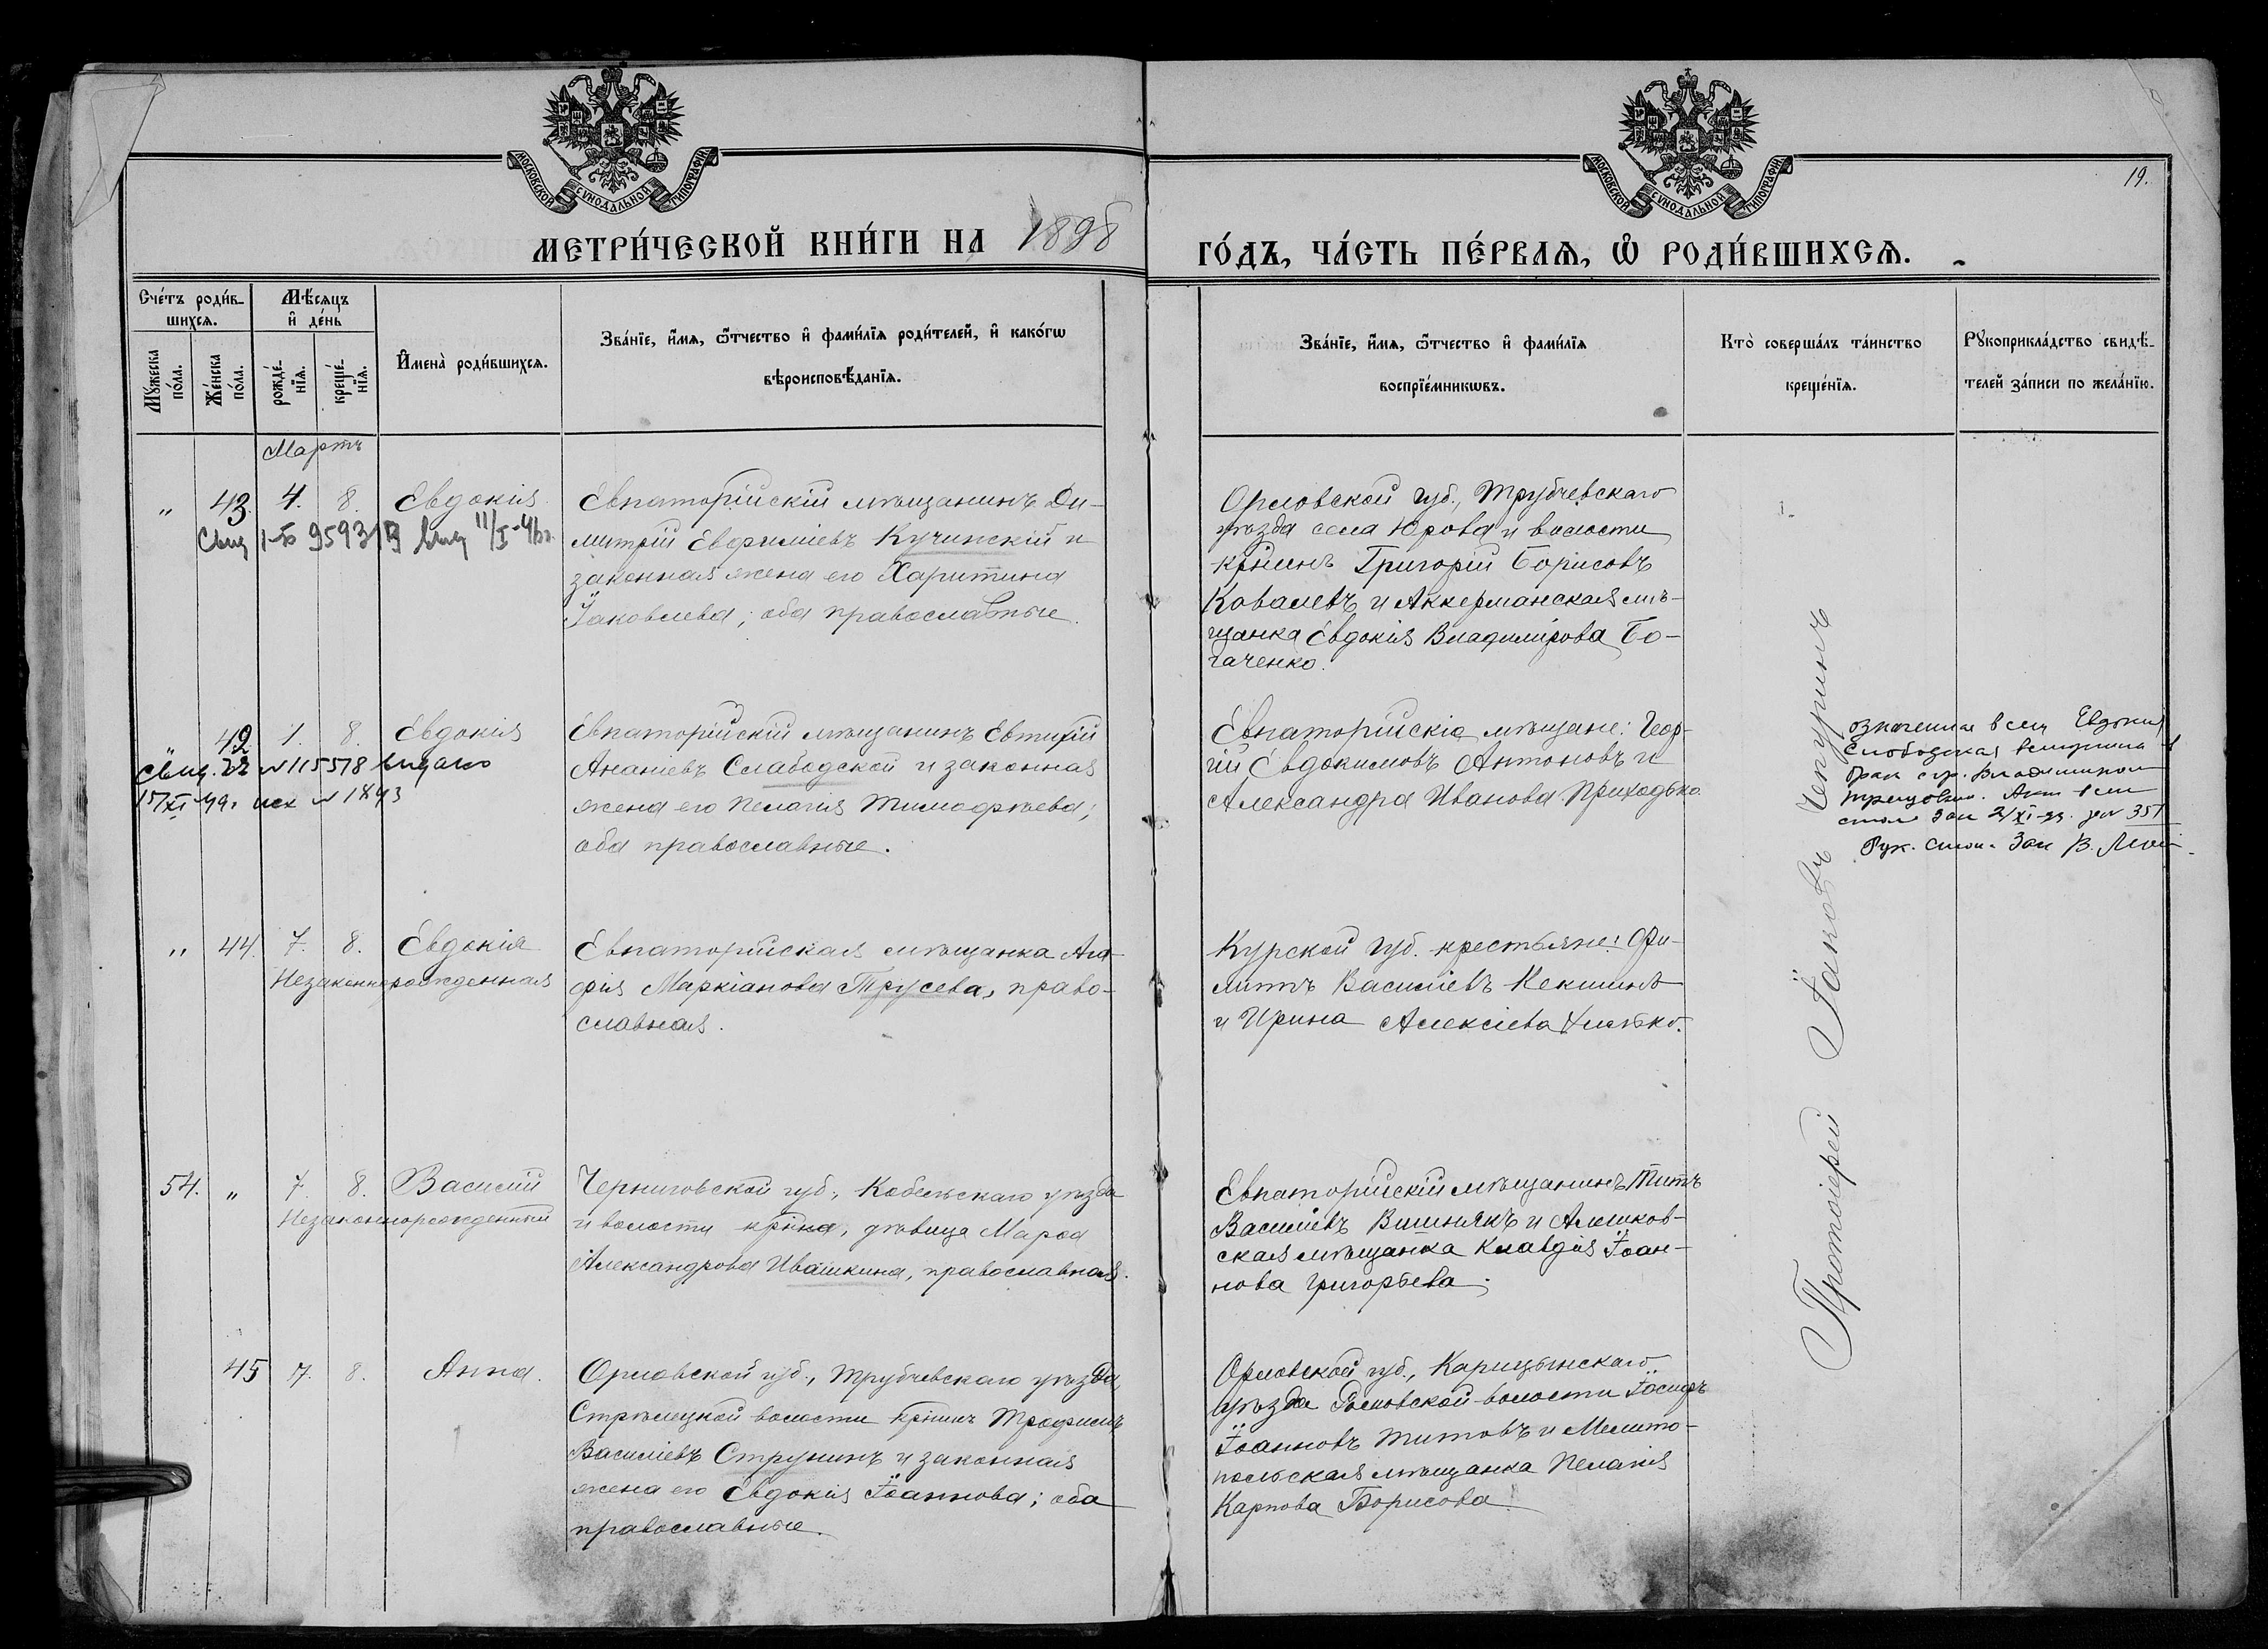 МОСКОВСКОЙ СУНОДАЛЬНОЙ ТИПОГРАФІИ
МОСКОВСКОЙ СУНОДАЛЬНОЙ ТИПОГРАФІИ
19.
МЕТРИ́ЧЕСКОЙ КНИ́ГИ НА 1898
ГО́ДЪ, ЧА́СТЬ ПЕ́РВАѦ, Ѡ҆ РОДИ́ВШИХСѦ.
Сче́тъ роди́в-
шихсѧ.
Мѣ́сѧцъ
и҆ де́нь
Мꙋ́жеска
по́ла.
Же́нска
по́ла.
рожде́-
нїѧ.
креще́-
нїѧ.
И҆мена̀ роди́вшихсѧ.
Зва́нїе, и҆́мѧ, ѻ҆́тчество и҆ фами́лїѧ роди́телей, и҆ како́гѡ
вѣроисповѣ́данїѧ.
Зва́нїе, и҆́мѧ, ѻ҆́тчество и҆ фами́лїѧ
воспрїе́мникѡвъ.
Кто̀ соверша́лъ та́инство
креще́нїѧ.
Рꙋкоприкла́дство свидѣ́-
телей за́писи по жела́нїю.
Мартъ
" 43. 4. 8. Евдокія
Евпаторійскій мѣщанинъ Ди-
митрій Евфиміевъ Кучинскій и
законная жена его Харитина
Іаковлева; оба православные.
Орловской губ., Трубчевскаго
уѣзда села Юрова и волости
кр҃нинъ Григорій Борисовъ
Ковалевъ и Аккерманская мѣ-
щанка Евдокія Владимірова Бо-
гаченко.
Свид 95931
" 42. 1. 8. Евдокія
Свид. № 115578 выдано
17/XI-49г. исх № 1843
Евпаторійскій мѣщанинъ Евтихій
Ананіевъ Слабодской и законная
жена его Пелагія Тимофѣева;
оба православные.
Евпаторійскіе мѣщане: Геор-
гій Евдокимовъ Антоновъ и
Александра Иванова Приходько.
Евдокия
Слободская вступила в
брак с гр.
351
Рук.
" 44. 7. 8. Евдокія
Незаконнорожденная
Евпаторійская мѣщанка Ага-
фія Маркіанова Трусева, право-
славная.
Курской губ. крестьяне: Фи-
липъ Василіевъ Кекшинъ
и Ирина Алексіева
54. " 7. 8. Василій
Незаконнорожденный
Черниговской губ., Кобельскаго уѣзда
и волости кр҃нка, дѣвица Марфа
Александрова Ивашкина, православная.
Евпаторійскій мѣщанинъ Титъ
Василіевъ Вишнякъ и Алешков-
ская мѣщанка Клавдія Іоан-
нова Григорьева.
45 7. 8. Анна.
Орловской губ., Трубчевскаго уѣзда,
Стрѣлецкой волости кр҃нинъ Трофимъ
Василіевъ Струнинъ и законная
жена его Евдокія Іоаннова; оба
православные.
Орловской губ.,
уѣзда волости Іосифъ
Іоанновъ Титовъ и Мелито-
польская мѣщанка Пелагія
Карпова Борисова
Протоіерей Іаковъ Чепуринъ